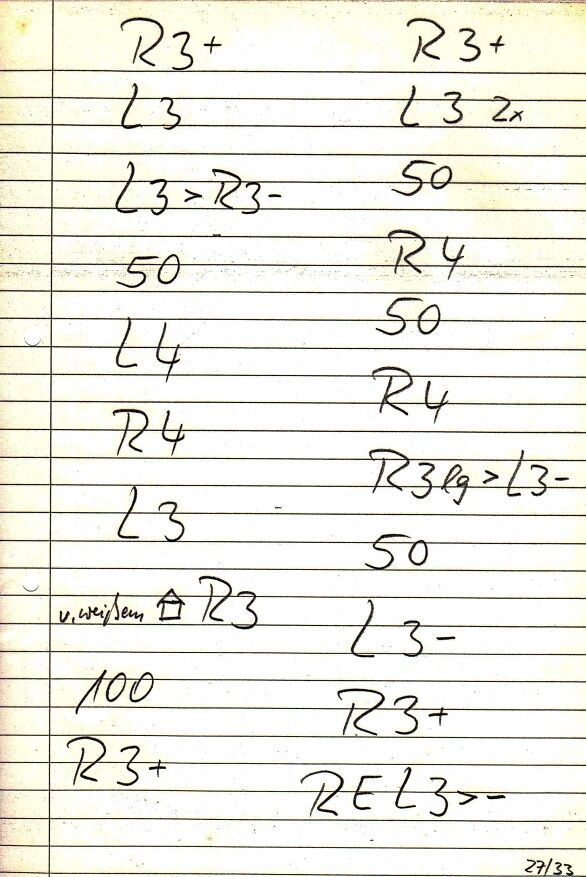 R3+
L3
L3>R3-
50
L4
R4
L3
v. weißem R3
100
R3+
R3+
L3 2x
50
R4
50
R4
R3lg>L3-
50
L3-
R3+
RE L3>-
27/33